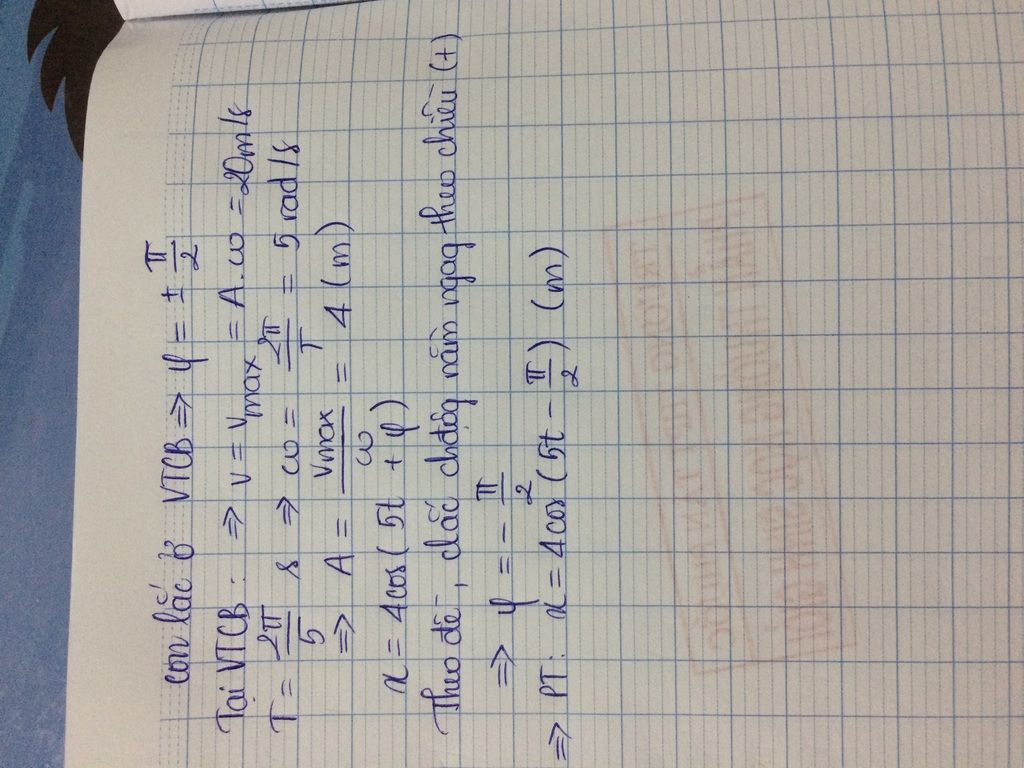 con lắc ở VTCB => φ = ± π/2
Tại VTCB: => v = vmax = A.ω = 20m/s
T = 2π/5 s => ω = 2π/T = 5 rad/s
=> A = vmax/ω = 4 (m)
x = 4cos(5t + φ)
Theo đề, clắc chđộg nằm ngag theo chiều (+)
=> φ = - π/2
=> PT: x = 4cos(5t - π/2) (m)